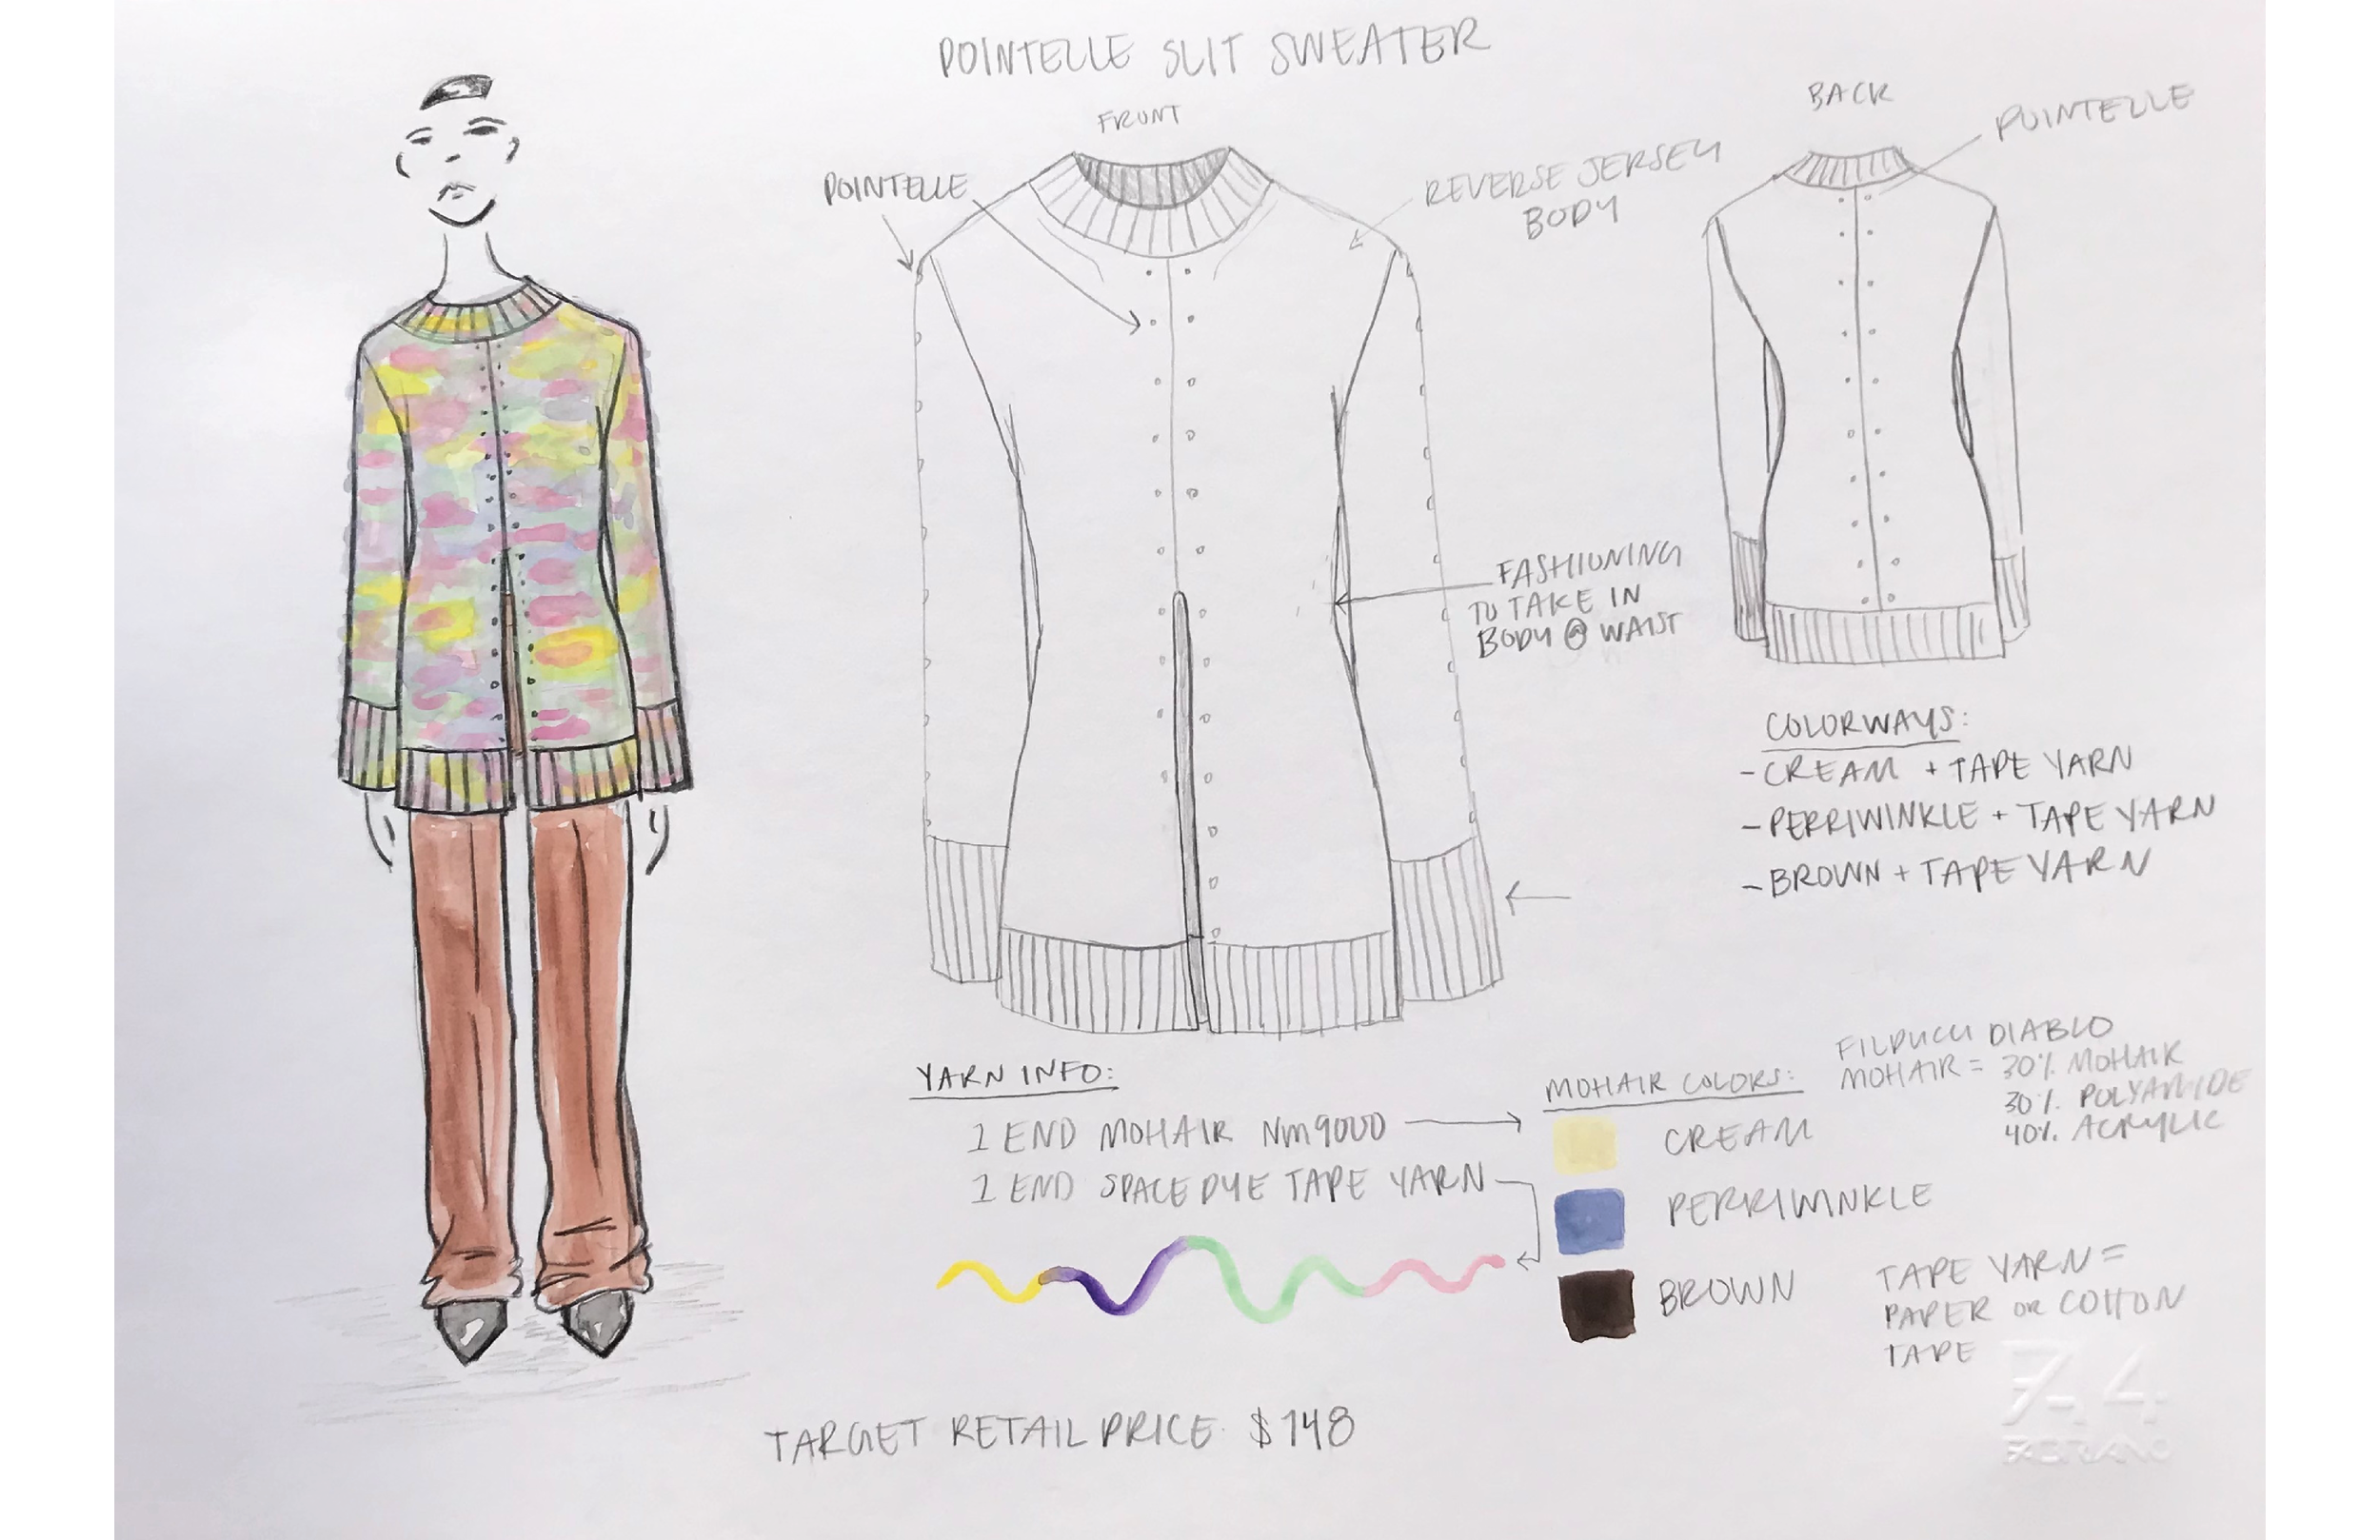 POINTELLE SLIT SWEATER
FRONT
BACK
POINTELLE
POINTELLE
REVERSE JERSEY
BODY
FASHIONING
TO TAKE IN
BODY @ WAIST
COLORWAYS:
- CREAM + TAPE YARN
- PERRIWINKLE + TAPE YARN
- BROWN + TAPE YARN
YARN INFO:
1 END MOHAIR Nm9000
1 END SPACE DYE TAPE YARN
MOHAIR COLORS:
CREAM
PERRIWINKLE
BROWN
FILPUCCI DIABLO
MOHAIR = 30% MOHAIR
30% POLYAMIDE
40% ACRYLIC
TAPE YARN =
PAPER OR COTTON
TAPE
TARGET RETAIL PRICE $148
FABRIANO